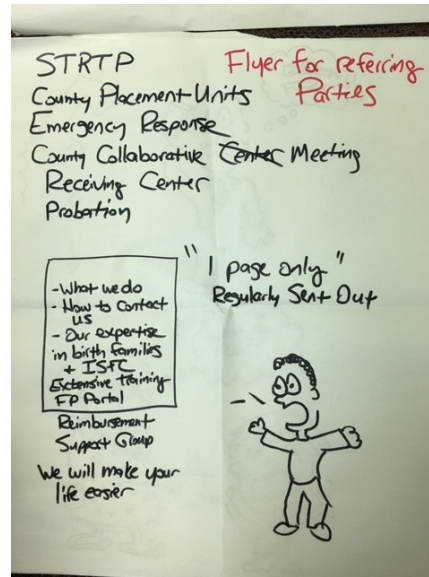 STRTP
County Placement Units
Emergency Response
County Collaborative Center Meeting
Receiving Center
Probation
Flyer for referring
Parties
"1 page only"
Regularly Sent Out
- What we do
- How to contact
us
- Our expertise
in birth families
+ ISFC
Extensive training
FP Portal
Reimbursement
Support Group
We will make your
life easier